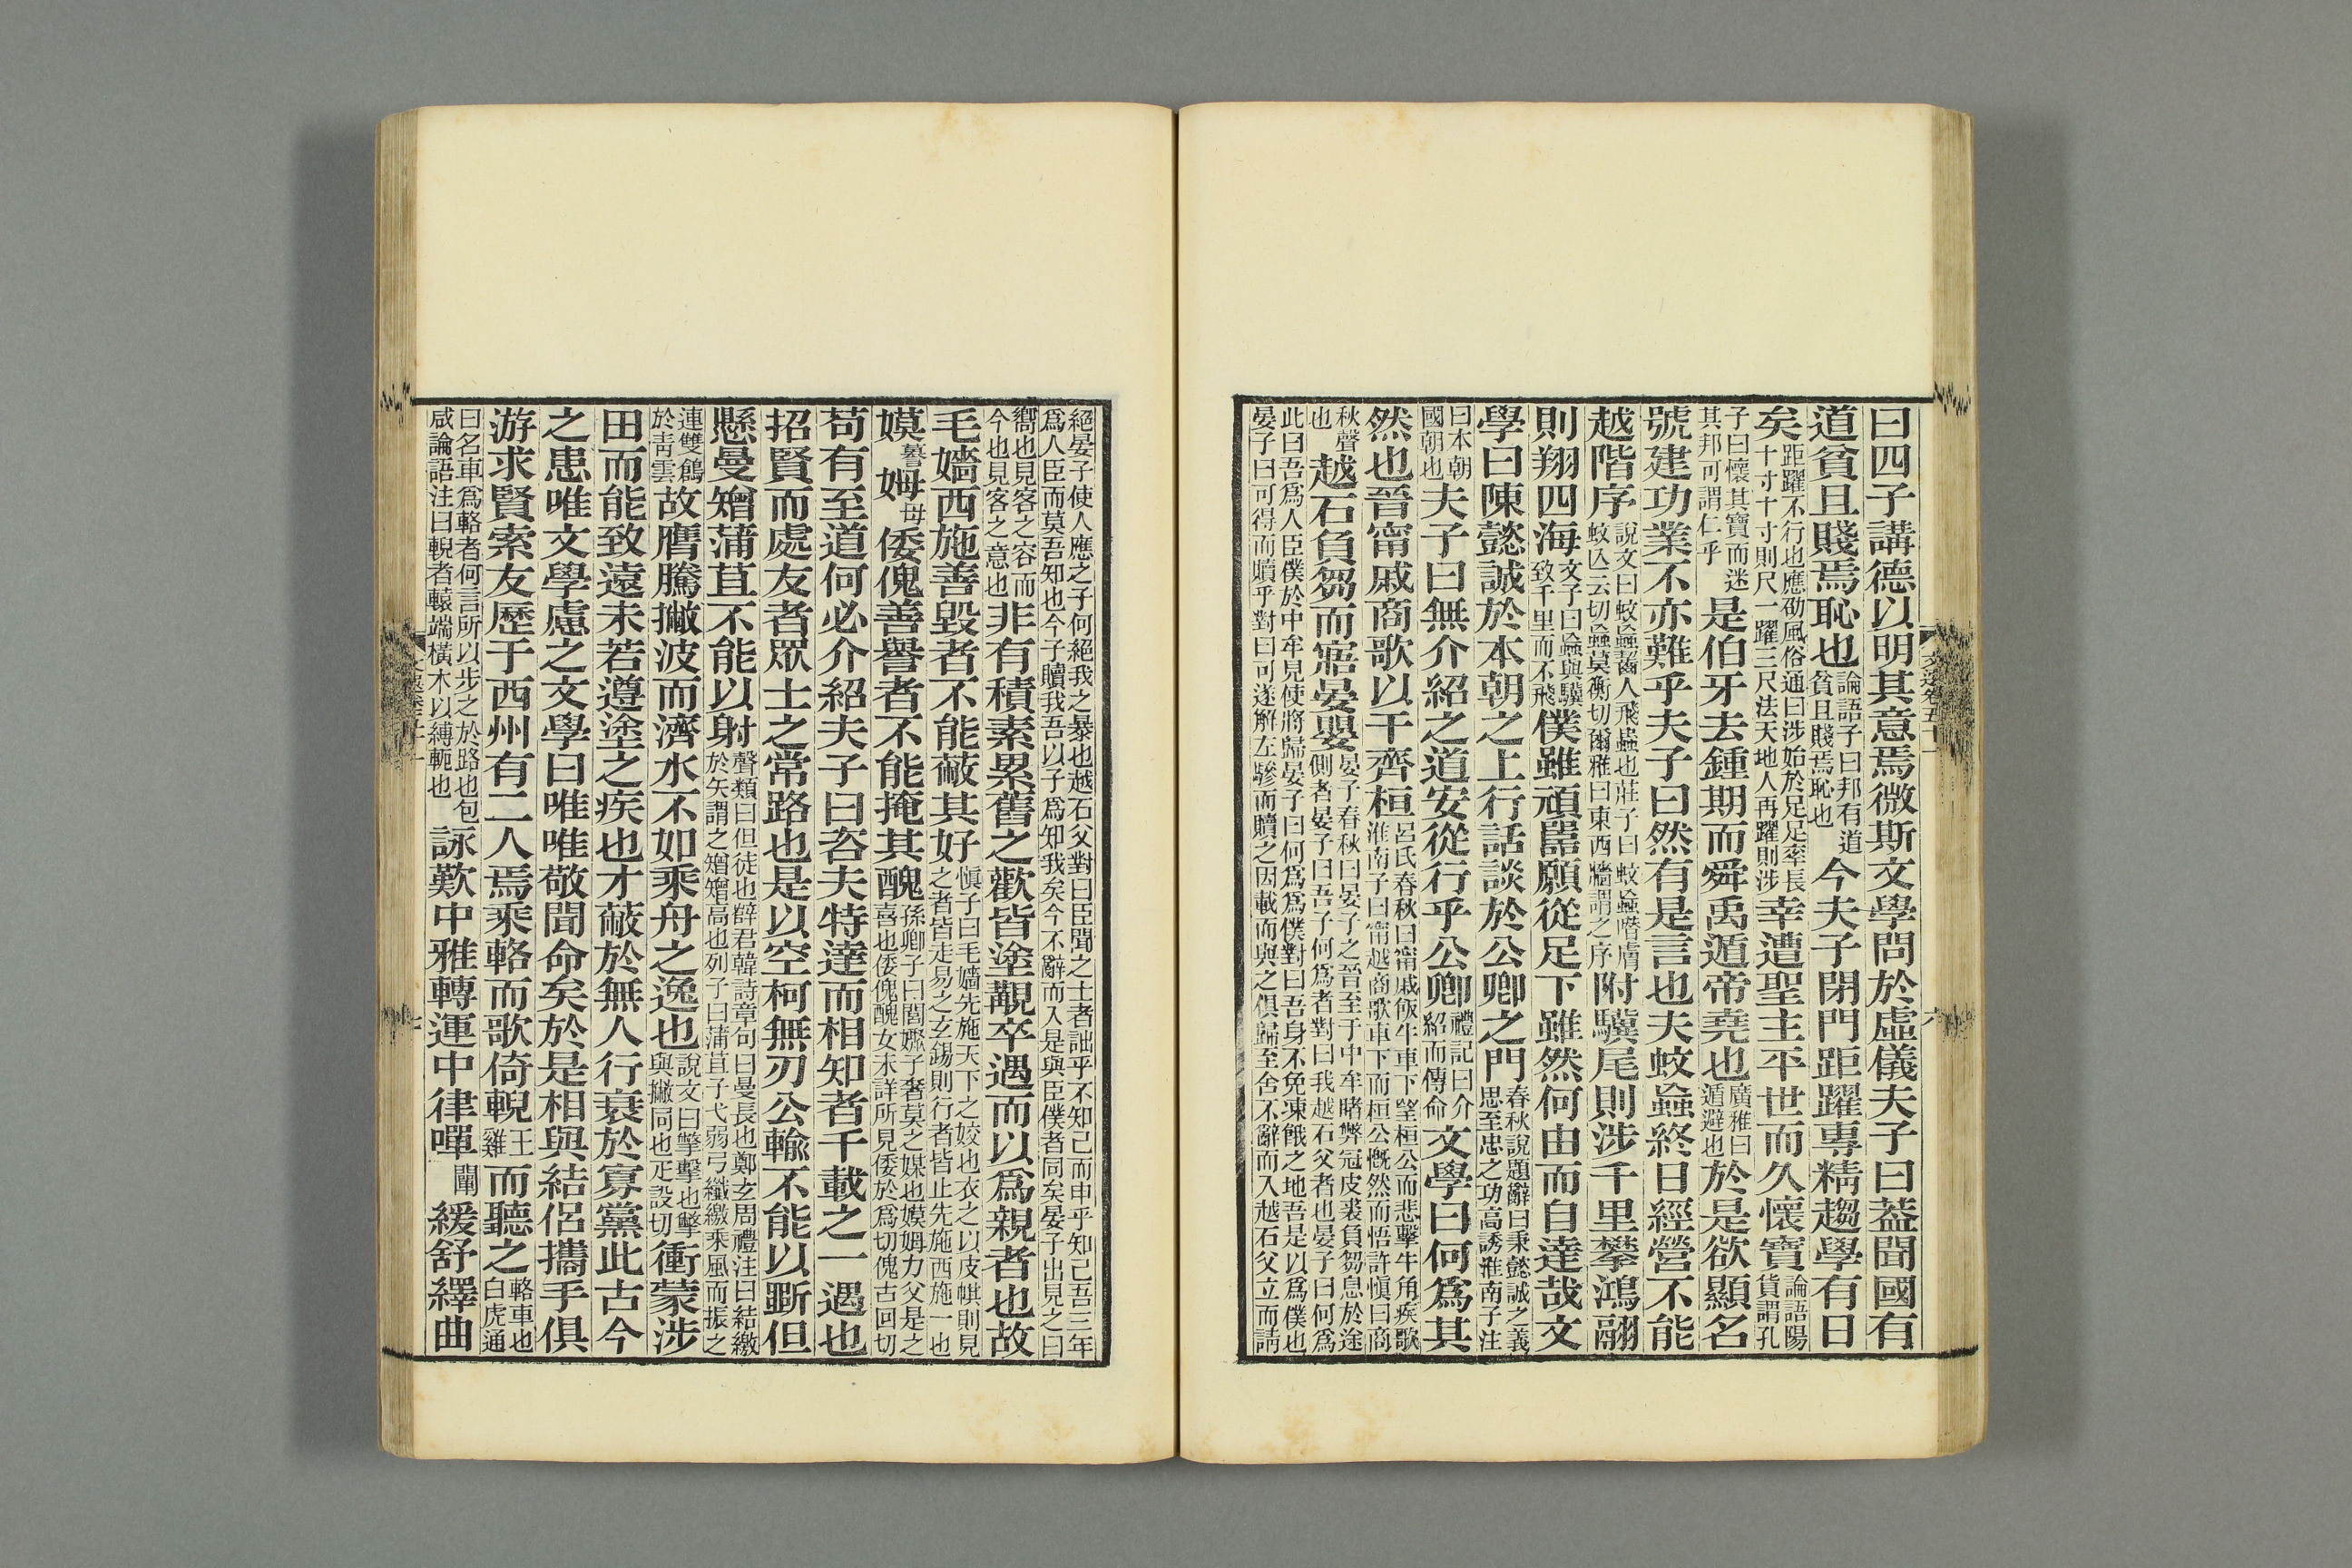 曰四子講德以明其意焉微斯文學問於虛儀夫子曰蓋聞國有
道貧且賤焉恥也論語子曰邦有道貧且賤焉恥也今夫子閉門距躍專精趨學有日
矣距躍不行也應劭風俗通曰涉始於足足率長十寸十寸則尺一躍三尺法天地人再躍則涉幸遭聖主平世而久懷寶論語陽貨謂孔
子曰懷其寶而迷其邦可謂仁乎是伯牙去鍾期而舜禹遁帝堯也廣雅曰遁避也於是欲顯名
號建功業不亦難乎夫子曰然有是言也夫蚊䖟終日經營不能
越階序說文曰蚊䖟齧人飛蟲也莊子曰蚊䖟噆膚蚊亾云切䖟莫衡切爾雅曰東西牆謂之序附驥尾則涉千里攀鴻翮
則翔四海文子曰䖟與驥致千里而不飛僕雖頑嚚願從足下雖然何由而自達哉文
學曰陳懿誠於本朝之上行話談於公卿之門春秋說題辭曰秉懿誠之義思至忠之功高誘淮南子注
曰本朝國朝也夫子曰無介紹之道安從行乎公卿禮記曰介紹而傳命文學曰何爲其
然也昔甯戚商歌以干齊桓呂氏春秋曰甯戚飯牛車下望桓公而悲擊牛角疾歌淮南子曰甯越商歌車下而桓公慨然而悟許愼曰商
秋聲也越石負芻而寤晏嬰晏子春秋曰晏子之晉至于中牟睹弊冠皮裘負芻息於途側者晏子曰吾子何爲者對曰我越石父者也晏子曰何爲
此曰吾爲人臣僕於中牟見使將歸晏子曰何爲爲僕對曰吾身不免凍餓之地吾是以爲僕也晏子曰可得而贖乎對曰可遂解左驂而贖之因載而與之俱歸至舍不辭而入越石父立而請
絕晏子使人應之子何絕我之暴也越石父對曰臣聞之士者詘乎不知己而申乎知己吾三年爲人臣而莫吾知也今子贖我吾以子爲知我矣今不辭而入是與臣僕者同矣晏子出見之曰
嚮也見客之容而今也見客之意也非有積素累舊之歡皆塗覯卒遇而以爲親者也故
毛嬙西施善毀者不能蔽其好愼子曰毛嬙先施天下之姣也衣之以皮倛則見之者皆走易之玄錫則行者皆止先施西施一也
嫫謩姆母倭傀善譽者不能掩其醜孫卿子曰閭娵子奢莫之媒也嫫姆力父是之喜也倭傀醜女未詳所見倭於爲切傀古回切
苟有至道何必介紹夫子曰咨夫特達而相知者千載之一遇也
招賢而處友者眾士之常路也是以空柯無刃公輸不能以斲但
懸曼矰蒲苴不能以射聲類曰但徒也薛君韓詩章句曰曼長也鄭玄周禮注曰結繳於矢謂之矰矰高也列子曰蒲苴子弋弱弓纖繳乘風而振之
連雙鶬於青雲故膺騰撇波而濟水不如乘舟之逸也說文曰擊擊也擊與撇同也疋設切衝蒙涉
田而能致遠未若遵塗之疾也才蔽於無人行衰於寡黨此古今
之患唯文學慮之文學曰唯唯敬聞命矣於是相與結侶攜手俱
游求賢索友歷于西州有二人焉乘輅而歌倚輗王雞而聽之輅車也白虎通
曰名車爲輅者何言所以步之於路也包咸論語注曰輗者轅端橫木以縛軛也詠歎中雅轉運中律嘽闡緩舒繹曲